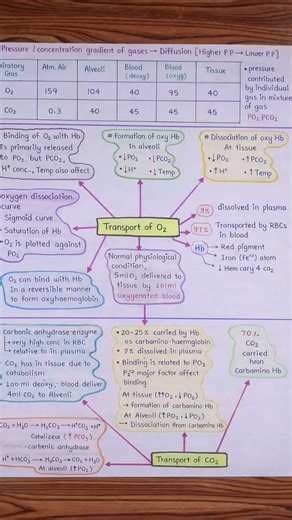 Pressure / concentration gradient of gases → Diffusion [Higher P.P → Lower P.P]
piratory Gas | Atm. Air | Alveoli | Blood (deoxy) | Blood (oxy) | Tissue
O₂ | 159 | 104 | 40 | 95 | 40
CO₂ | 0.3 | 40 | 45 | 45 | 45
• pressure
contributed
by individual
gas in mixture
of gas
PO₂ PCO₂
Binding of O₂ with Hb
is primarily released
to PO₂, but PCO₂,
H⁺ conc., Temp also affect
# Formation of oxy Hb
In alveoli
• ↓PO₂ • ↓PCO₂
• ↓H⁺ • ↓Temp
# Dissociation of oxy Hb
At tissue
• ↓PO₂ • ↑PCO₂
• ↑H⁺ • ↑Temp
oxygen dissociation
curve
• Sigmoid curve
• Saturation of Hb
• O₂ is plotted against
PO₂
Transport of O₂
3% dissolved in plasma
97% Transported by RBCs
in blood
Hb → Red pigment
→ Iron (Fe⁺²) atom
↓ Hem carry 4 O₂
O₂ can bind with Hb
In a reversible manner
to form oxyhaemoglobin
Normal physiological
condition,
5ml O₂ delivered to
tissue by 100ml
oxygenated blood
carbonic anhydrase enzyme
→ very high conc in RBC
→ relative to in plasma
CO₂ has in tissue due to
catabolism
• 100 ml deoxy. blood deliver
4ml CO₂ to Alveoli
• 20-25% carried by Hb
as carbamino-haemglobin
• 7% dissolved in plasma
• Binding is related to PO₂
major factor affect
binding
At tissue (↑PCO₂ ↓PO₂)
→ formation of carbamino Hb
At Alveoli (↑PO₂ ↓PO₂)
→ Dissociation from carbamino Hb
70%
CO₂
carried
Carbamino Hb
CO₂ + H₂O → H₂CO₃ → H⁺CO₃ + H⁺
Catalizeor (↑PCO₂)
carbenic anhydrase
H⁺ + HCO₃ → H₂CO₃ → CO₂ + H₂O
At alveoli (↑PO₂)
Transport of CO₂